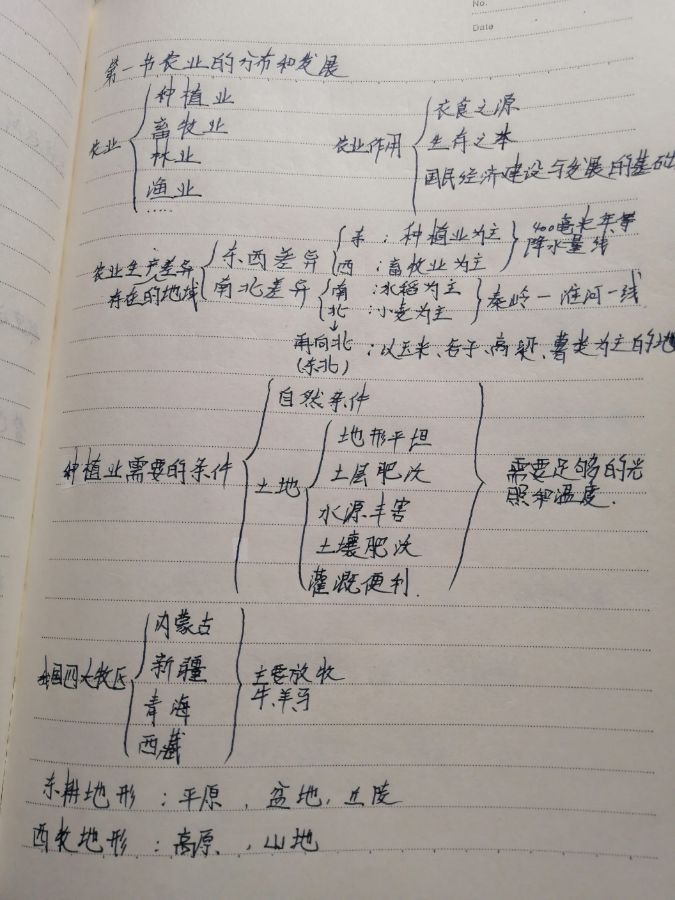 No.
Date
第一节农业的分布和发展
农业
种植业
畜牧业
林业
渔业
……
农业作用
衣食之源
生存之本
国民经济建设与发展的基础
农业生产差异
存在的地域
东西差异
东：种植业为主
西：畜牧业为主
400毫米年等
降水量线
南北差异
南：水稻为主
北：小麦为主
秦岭一淮河一线
再向北
(东北)
：以玉米、谷子、高粱、薯类为主的地
种植业需要的条件
自然条件
土地
地形平坦
土层肥沃
水源丰害
土壤肥沃
灌溉便利.
需要足够的光
照和温度.
我国四大牧区
内蒙古
新疆
青海
西藏
主要放牧
牛、羊、马
东耕地形：平原、盆地、丘陵
西牧地形：高原、山地